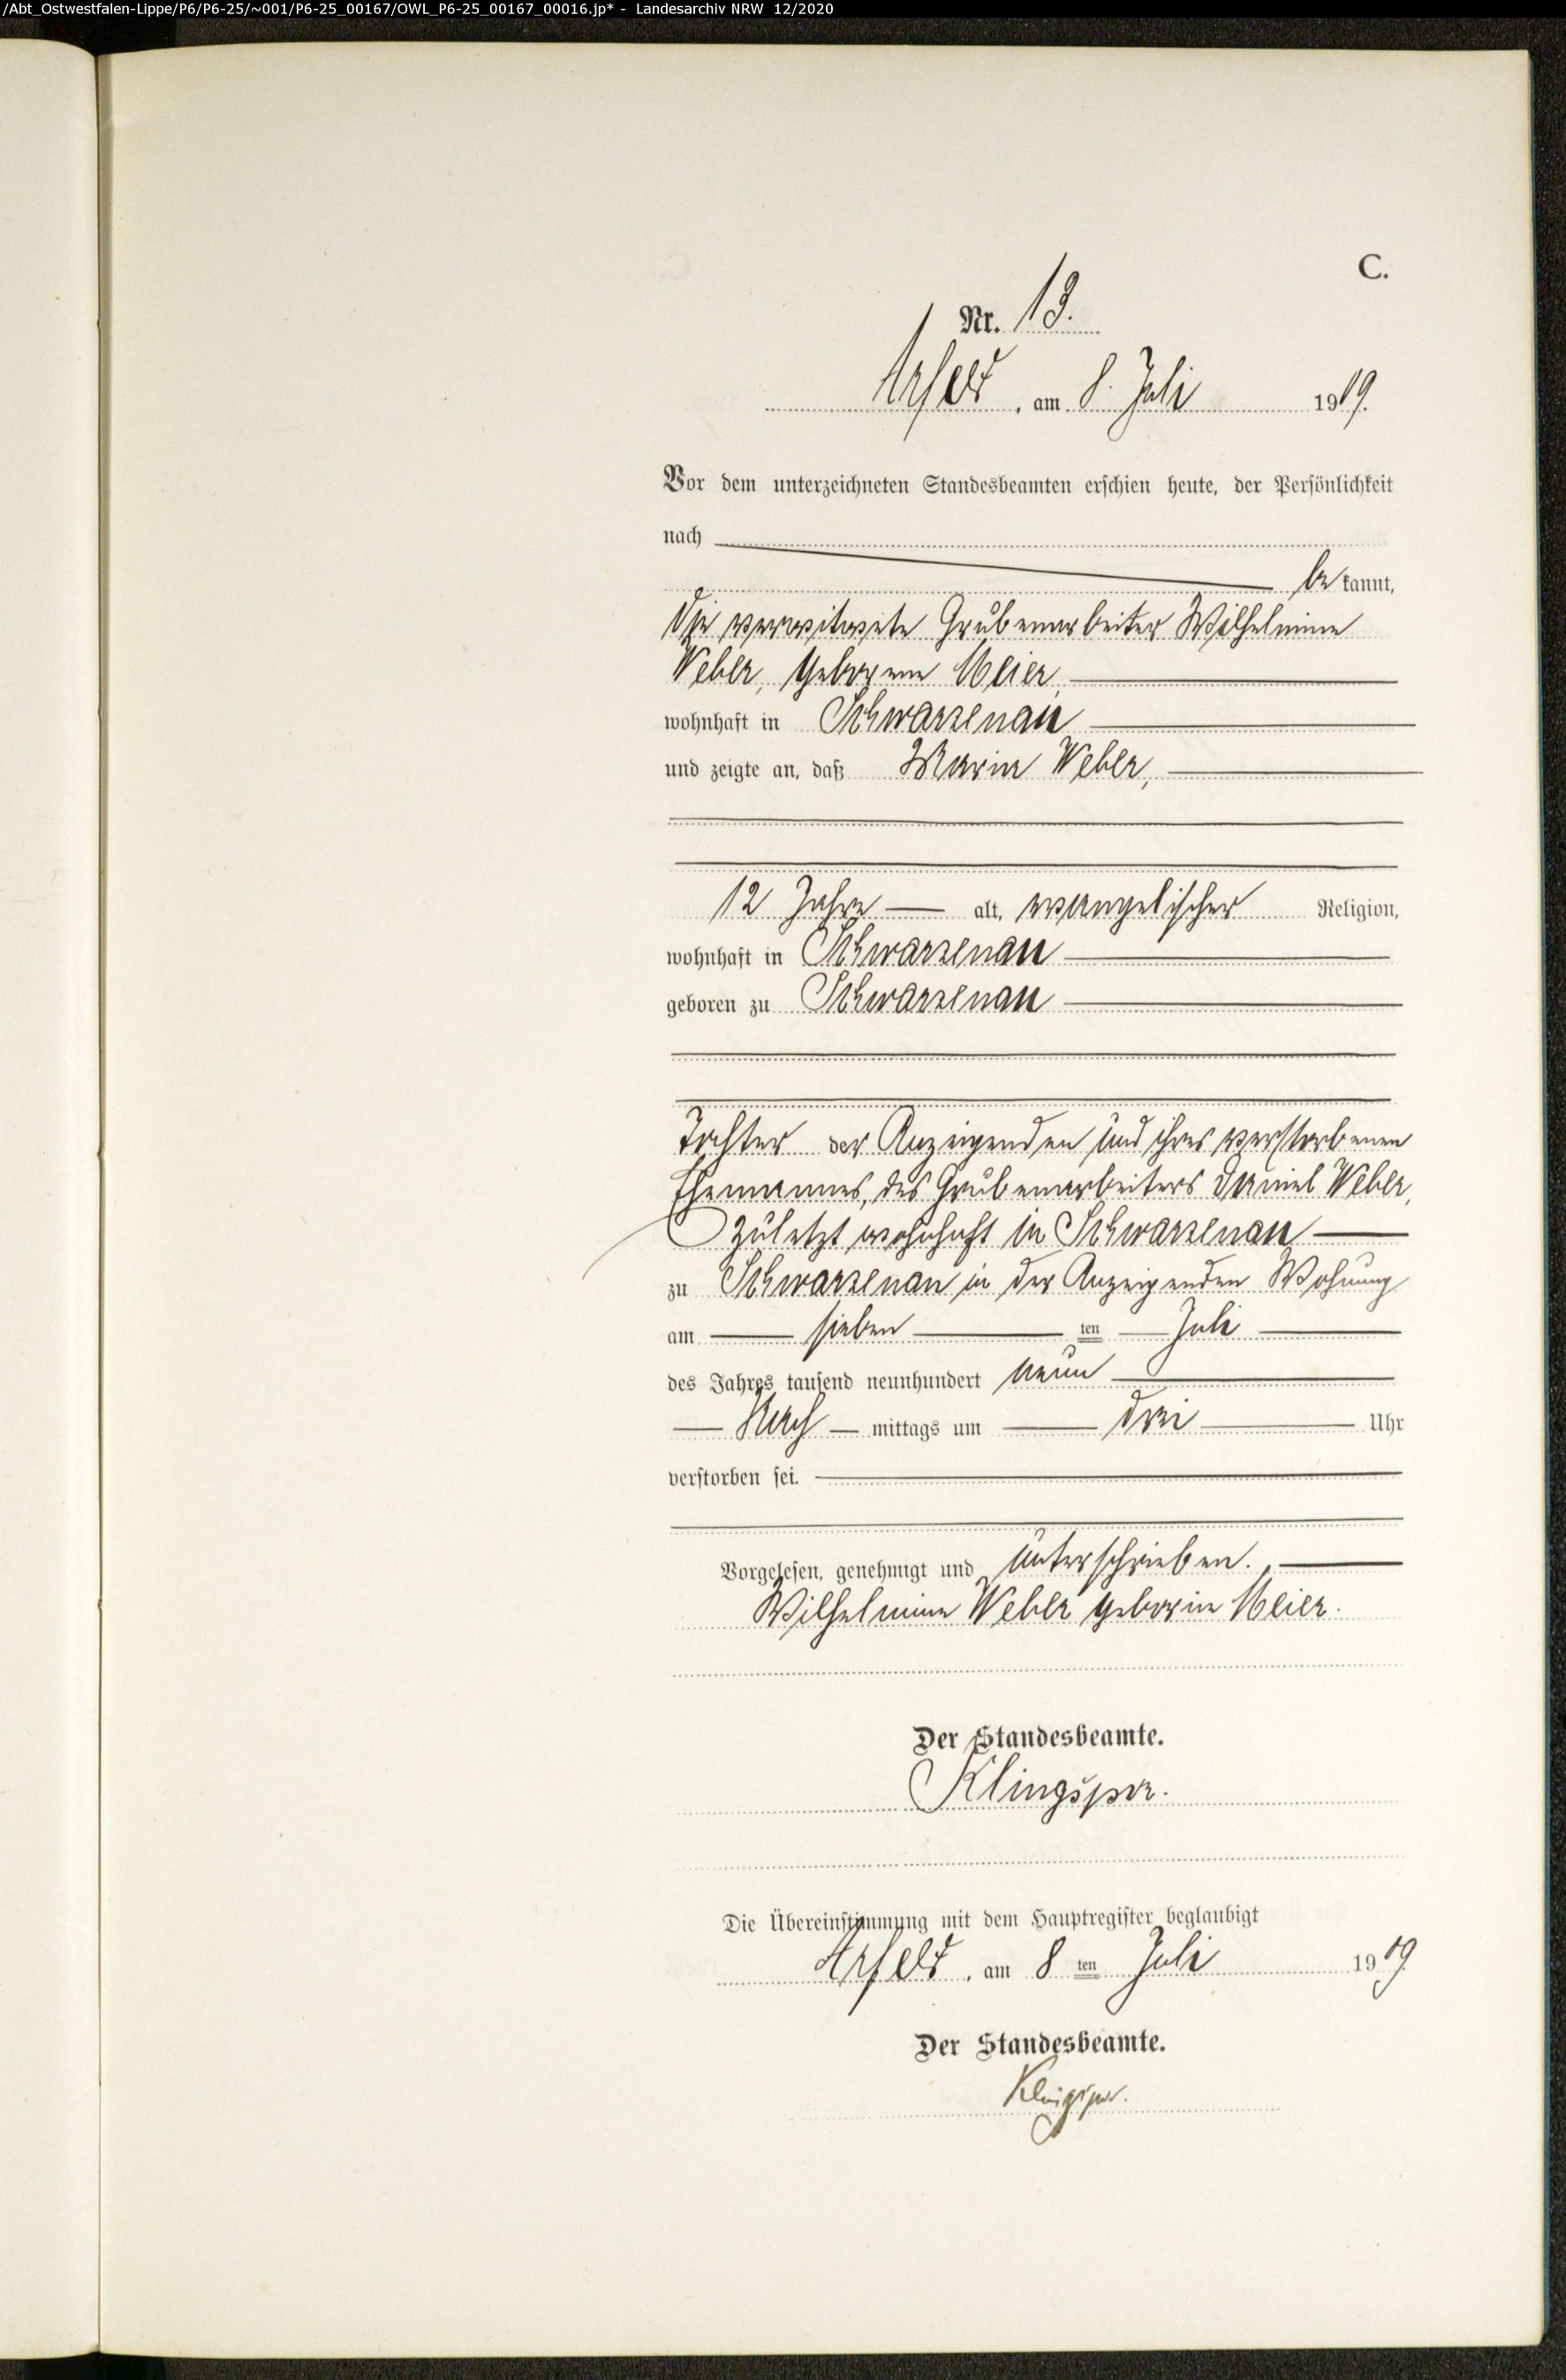 /Abt_Ostwestfalen-Lippe/P6/P6-25/~001/P6-25_00167/OWL_P6-25_00167_00016.jp* - Landesarchiv NRW 12/2020
C.
Nr. 13.
Arfeld, am 8. Juli 1909.
Vor dem unterzeichneten Standesbeamten erschien heute, der Persönlichkeit
nach
bekannt,
die verwitwete Grubenarbeiter Wilhelmine
Weber, geborene Meier,
wohnhaft in Schwarzenau
und zeigte an, daß Marie Weber,
12 Jahre alt, evangelischer Religion,
wohnhaft in Schwarzenau
geboren zu Schwarzenau
Tochter der Anzeigenden und ihres verstorbenen
Ehemannes, des Grubenarbeiters Daniel Weber,
zuletzt wohnhaft in Schwarzenau
zu Schwarzenau in der Anzeigenden Wohnung
am sieben ten Juli
des Jahres tausend neunhundert neun
Nach mittags um drei Uhr
verstorben sei.
Vorgelesen, genehmigt und unterschrieben.
Wilhelmine Weber geborene Meier.
Der Standesbeamte.
Klingspor.
Die Übereinstimmung mit dem Hauptregister beglaubigt
Arfeld, am 8 ten Juli 1909
Der Standesbeamte.
Klingspor.